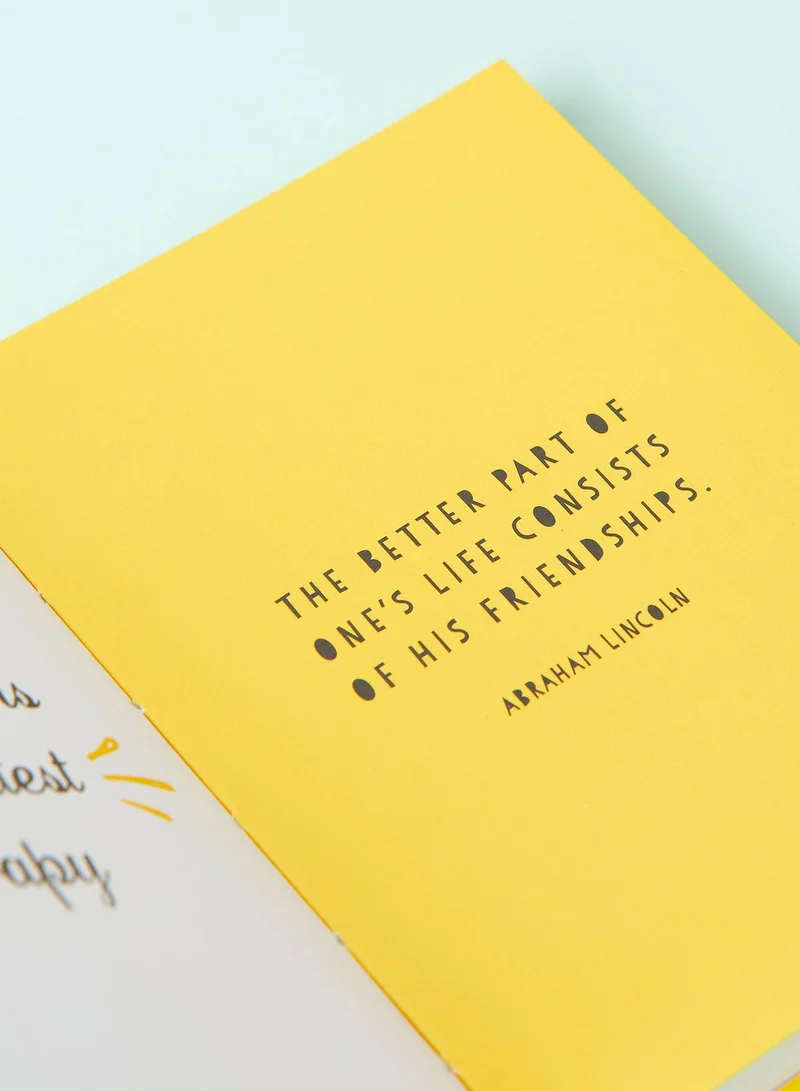 THE BETTER PART OF
ONE'S LIFE CONSISTS
OF HIS FRIENDSHIPS.
ABRAHAM LINCOLN